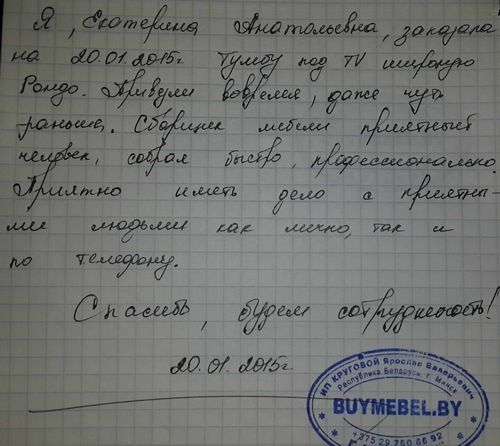 Я, Екатерина Анатольевна, заказала
на 20.01.2015г Тумбу под TV широкую
Рондо. Привезли вовремя, даже чуть
раньше. Сборщик мебели приятный
человек, собрал быстро, профессионально.
Приятно иметь дело с приятны-
ми людьми как лично, так и
по телефону.
Спасибо, будем сотрудничать!
20.01.2015г.
ИП КРУГОВОЙ Ярослав Валерьевич
Республика Беларусь, г. Минск
BUYMEBEL.BY
+375 29 750 66 92